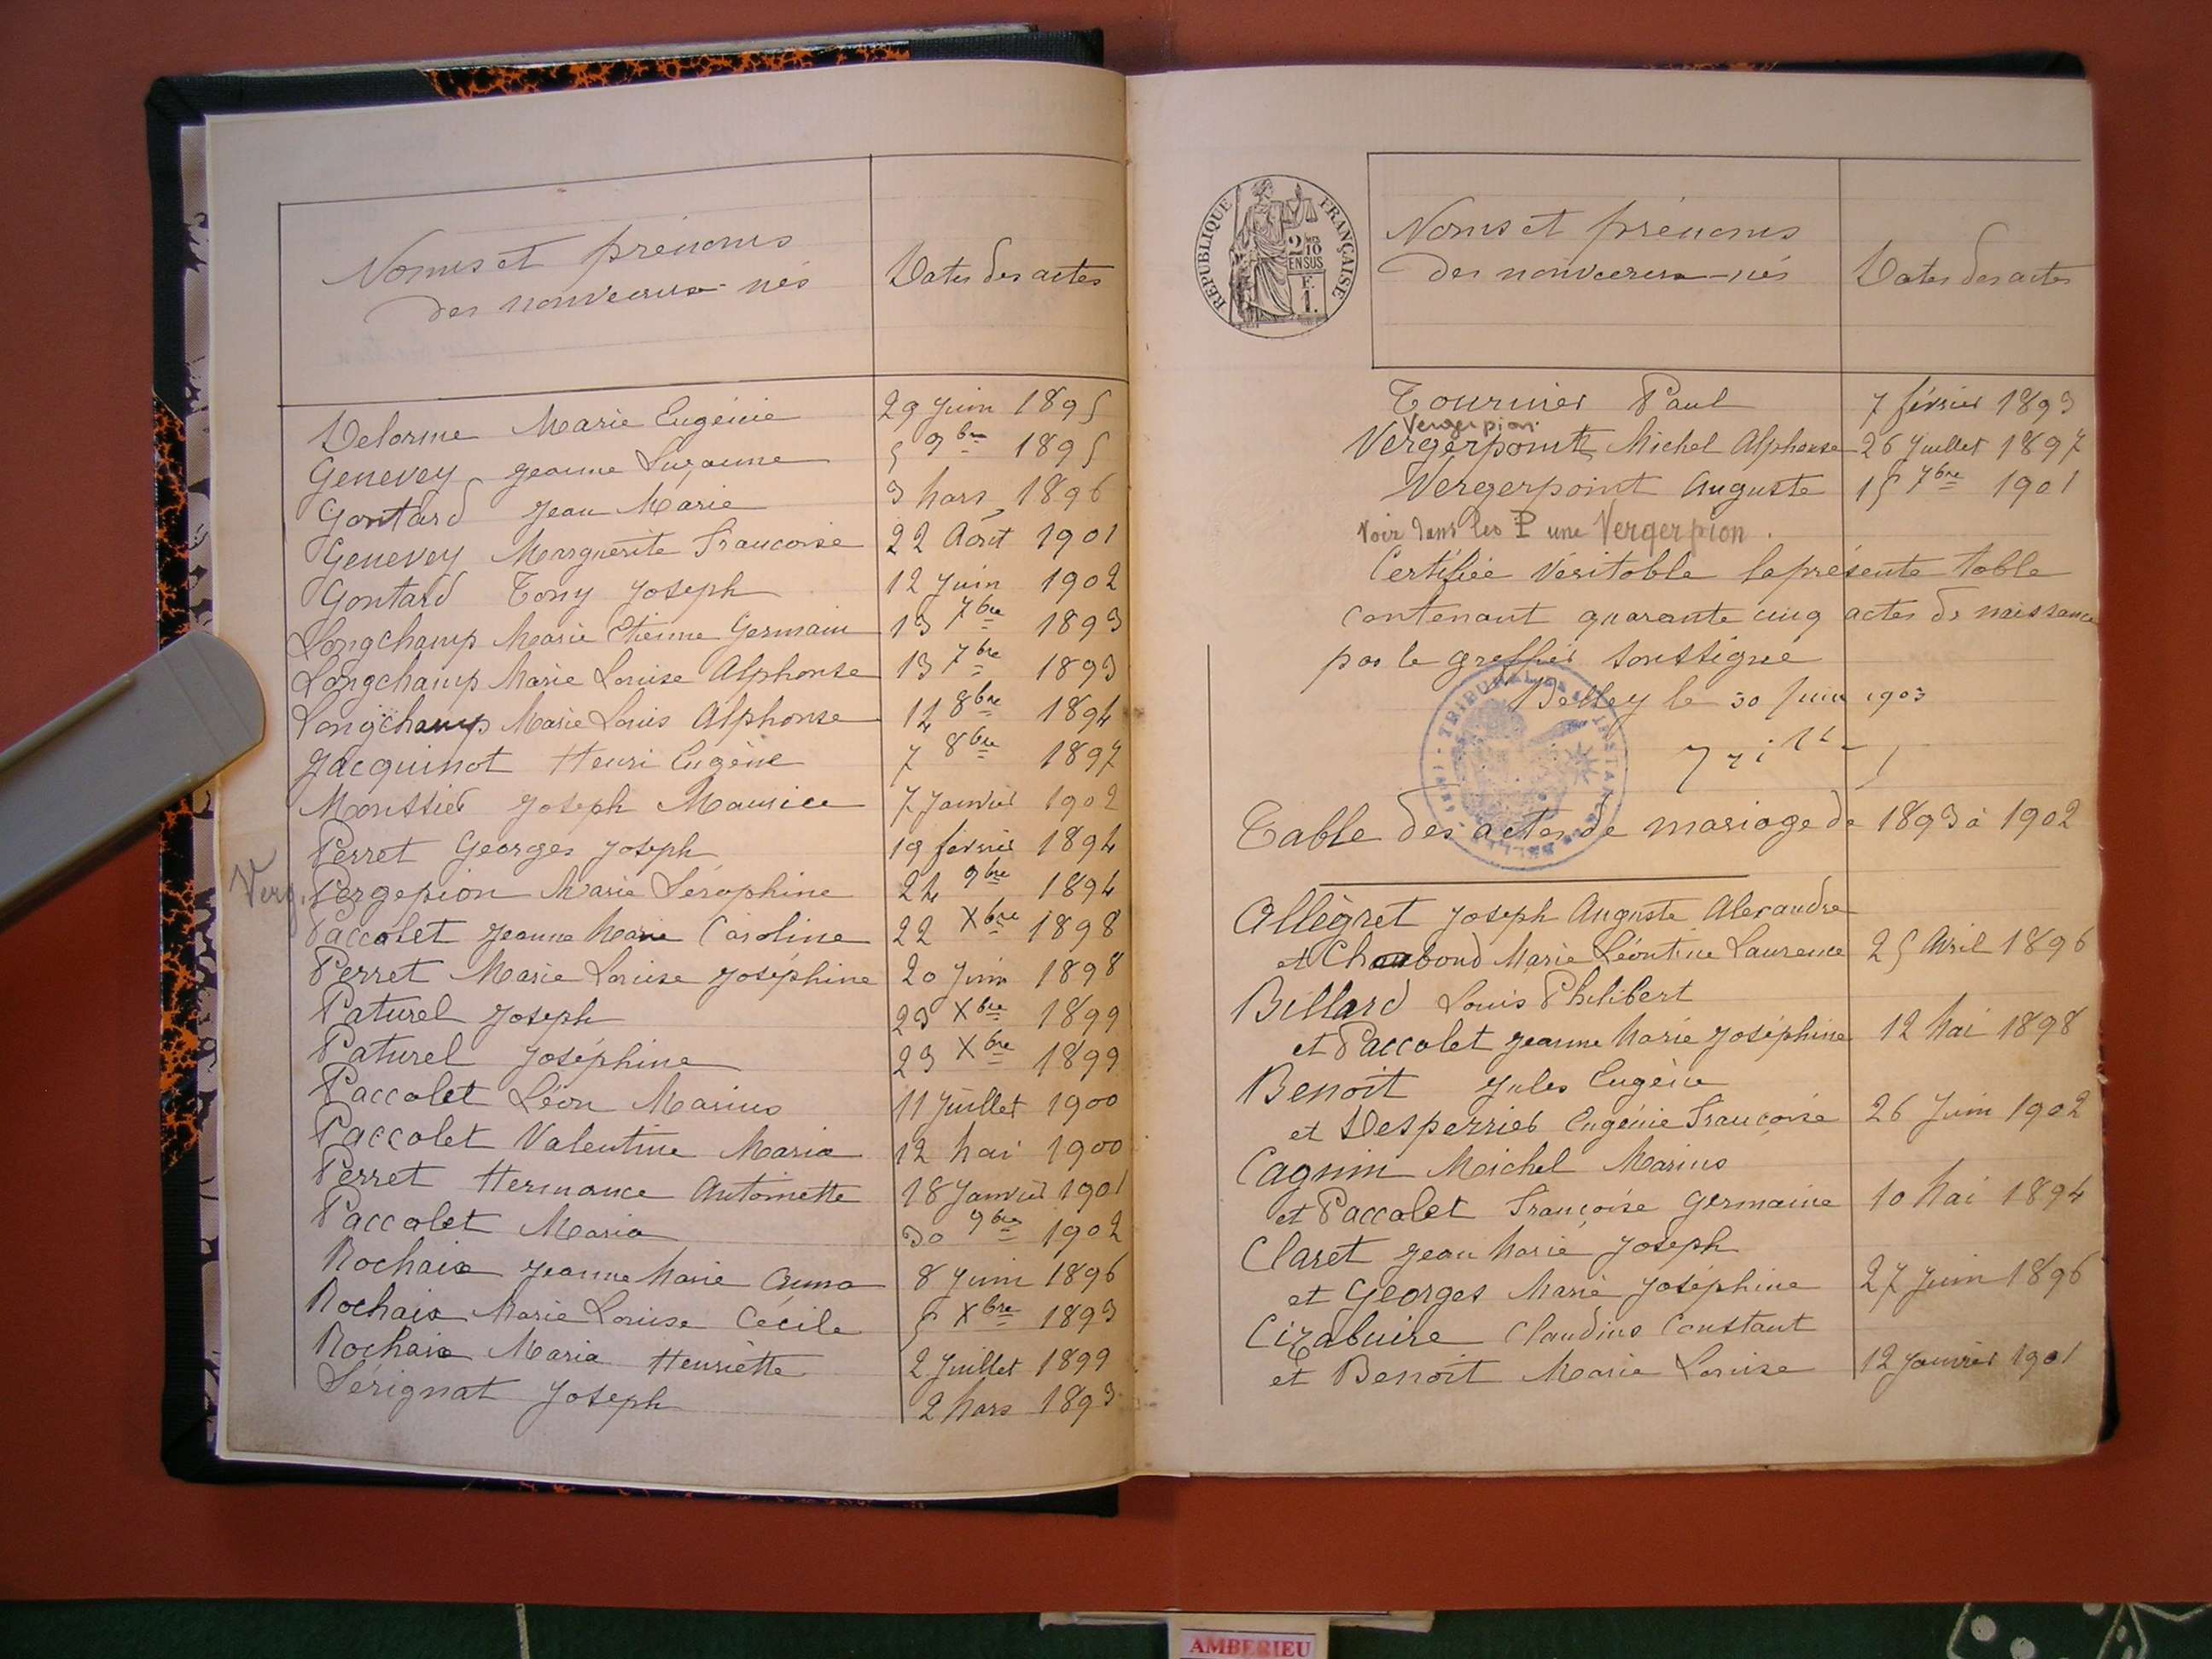 Noms et prénoms
des nouveaux-nés
Dates des actes
Delorme Marie Eugénie 29 Juin 1895
Genevey Jeanne Suzanne 5 9bre 1895
Gontard Jean Marie 3 Mars 1896
Genevey Marguerite Francoise 22 Août 1901
Gontard Tony Joseph 12 Juin 1902
Longchamp Marie Etienne Germain 13 7bre 1893
Longchamp Marie Louise Alphonse 13 7bre 1893
Longchamp Marie Louis Alphonse 14 8bre 1894
Jacquinot Henri Eugène 7 8bre 1897
Monssier Joseph Maurice 7 Janvier 1902
Perret Georges Joseph 19 février 1894
Verg. Pergepion Marie Séraphine 24 9bre 1894
Paccalet Jeanne Marie Caroline 22 Xbre 1898
Perret Marie Louise Joséphine 20 Juin 1898
Paturel Joseph 23 Xbre 1899
Paturel Joséphine 23 Xbre 1899
Paccalet Léon Marius 11 Juillet 1900
Paccalet Valentine Maria 12 Mai 1900
Perret Hermance Antoinette 18 Janvier 1901
Paccalet Maria 30 9bre 1902
Rochaix Jeanne Marie Anna 8 Juin 1896
Rochaix Marie Louise Cécile 5 Xbre 1893
Rochaix Maria Henriette 2 Juillet 1899
Sérignat Joseph 2 Mars 1893
REPUBLIQUE FRANÇAISE
2 10
EN SUS
F.
1.
Noms et prénoms
des nouveaux-nés
Dates des actes
Tournier Paul 7 février 1893
Vergerpion
Vergerpoint Michel Alphonse 26 Juillet 1897
Vergerpoint Auguste 15 7bre 1901
Voir dans les P une Vergerpion.
Certifiée véritable la présente table
contenant quarante cinq actes de naissance
par le greffier soussigné
Belley le 30 Juin 1903
Table des actes de mariage de 1893 à 1902
Allègret Joseph Auguste Alexandre
et Chabond Marie Léontine Laurence 25 Avril 1896
Billard Louis Philibert
et Paccalet Jeanne Marie Joséphine 12 Mai 1898
Benoit Jules Eugène
et Desperrier Eugénie Françoise 26 Juin 1902
Cagnin Michel Marius
et Paccalet Françoise Germaine 10 Mai 1894
Claret Jean Marie Joseph
et Georges Marie Joséphine 27 Juin 1896
Cizabuire Claudius Constant
et Benoit Marie Louise 12 Janvier 1901
AMBERIEU